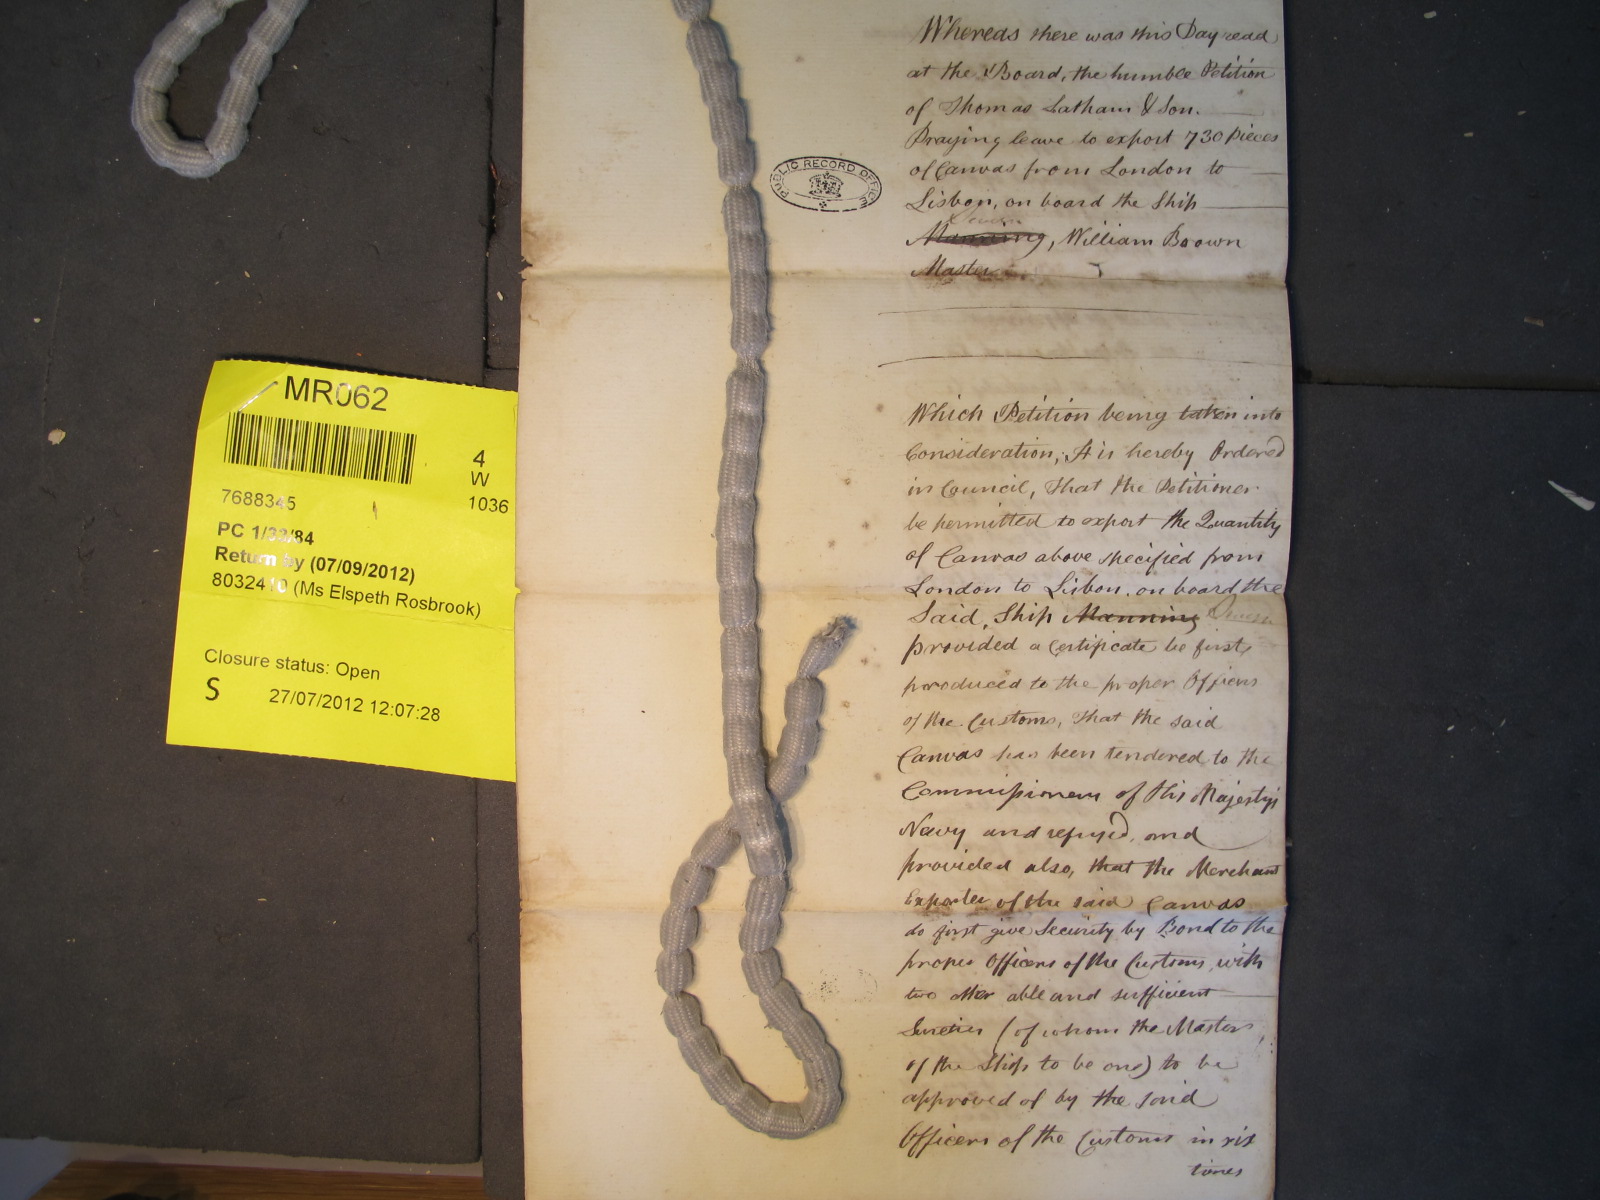 MR062
4
W
1036
7688345
PC 1/33/84
Return by (07/09/2012)
8032410 (Ms Elspeth Rosbrook)
Closure status: Open
S 27/07/2012 12:07:28
PUBLIC RECORD OFFICE
Whereas there was this Day read
at the Board, the humble Petition
of Thomas Latham & Son.
Praying leave to export 730 pieces
of Canvas from London to
Lisbon, on board the Ship
Manning, William Brown
Master
Which Petition being taken into
Consideration, It is hereby Ordered
in Council, That the Petitioner
be permitted to export the Quantity
of Canvas above specified from
London to Lisbon, on board the
Said, Ship Manning
provided a Certificate be first,
produced to the proper Officers
of the Customs, That the said
Canvas has been tendered to the
Commissioners of His Majesty's
Navy and refused, and
provided also, that the Merchant
Exporter of the said Canvas
do first give Security by Bond to the
proper Officers of the Customs, with
two other able and sufficient
Sureties (of whom the Master,
of the Ship to be one) to be
approved of by the said
Officers of the Customs in six
times